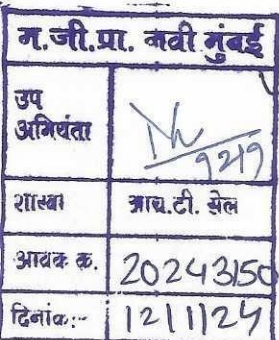 म.जी.प्रा. नवी मुंबई
उप
अभियंता
शाखा आय.टी. सेल
आवक क्र. 20243150
दिनांक:- 12/11/24